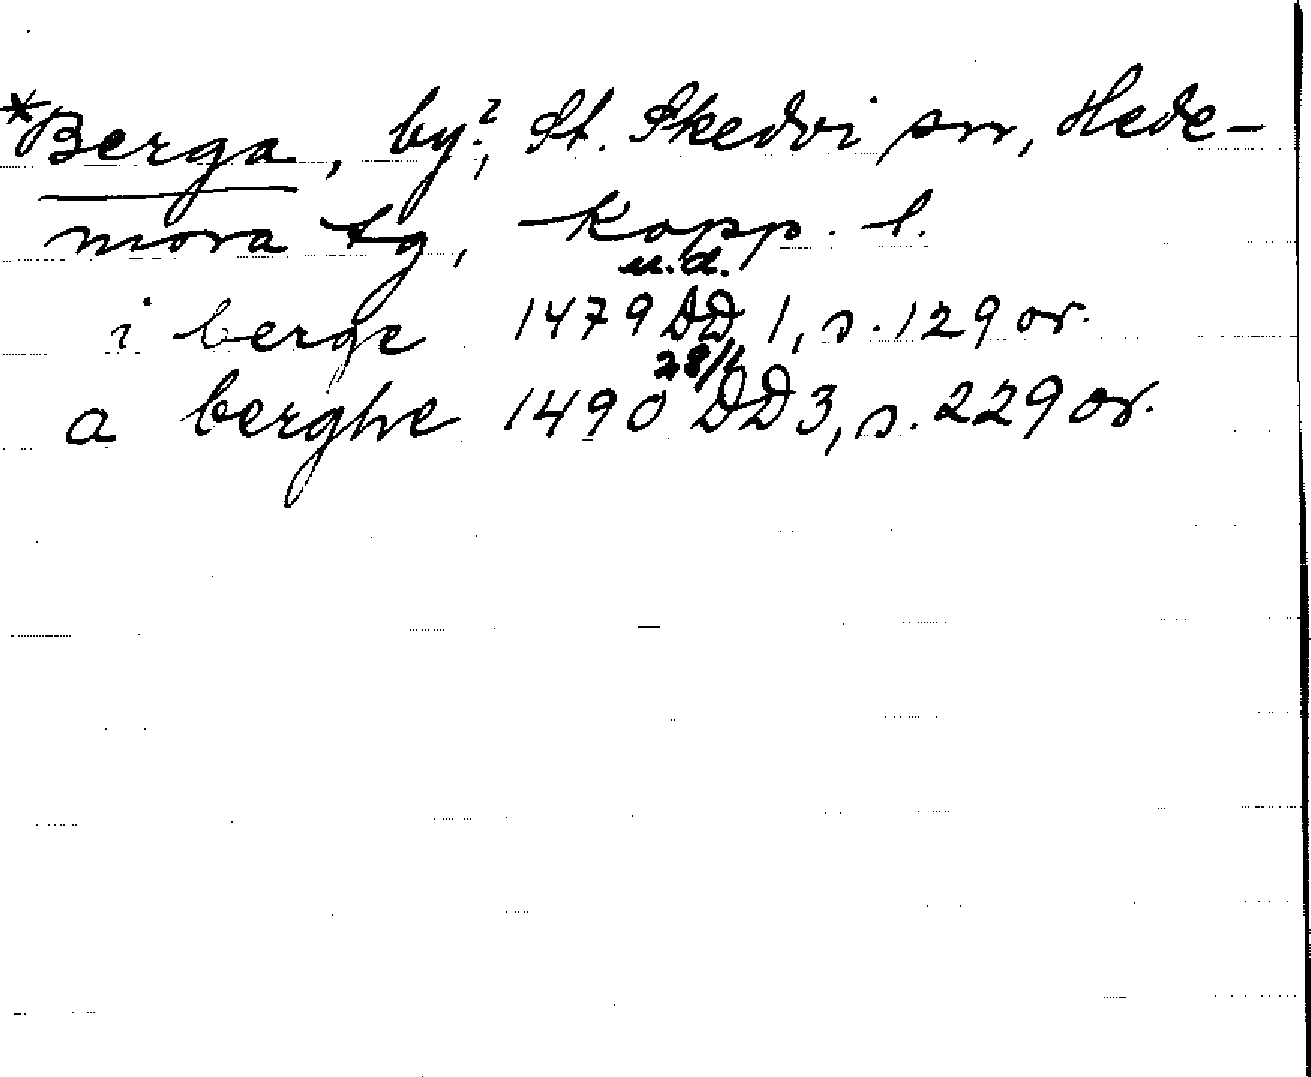 *Berga, by?, St. Skedvi sn, Hede-
mora tg, Kopp. l.
i berge 1479 u.d. DD 1, s. 129 or.
a berghe 1490 28/1 DD 3, s. 229 or.